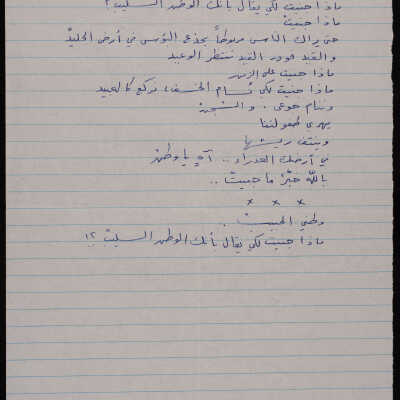 ماذا جنيت لكي يقال بأنك الوطن السليب؟
ماذا جنيت
حتى يراك الناس مربوطاً بجذع البؤس في أرض الجليد
والقيد فوق القيد ننتظر الوعيد
ماذا جنيت على الزمن
ماذا جنيت لكي تسام الخسف، نركع كالعبيد
وننام جوعى . والشجن
يهري طفولتنا
وينتف ريشها
في أرضك العذراء .. آهٍ يا وطن
بالله خبّر ما جنيت ..
× × ×
وطني الحبيب .
ماذا جنيت لكي يقال بأنك الوطن السليب ؟!